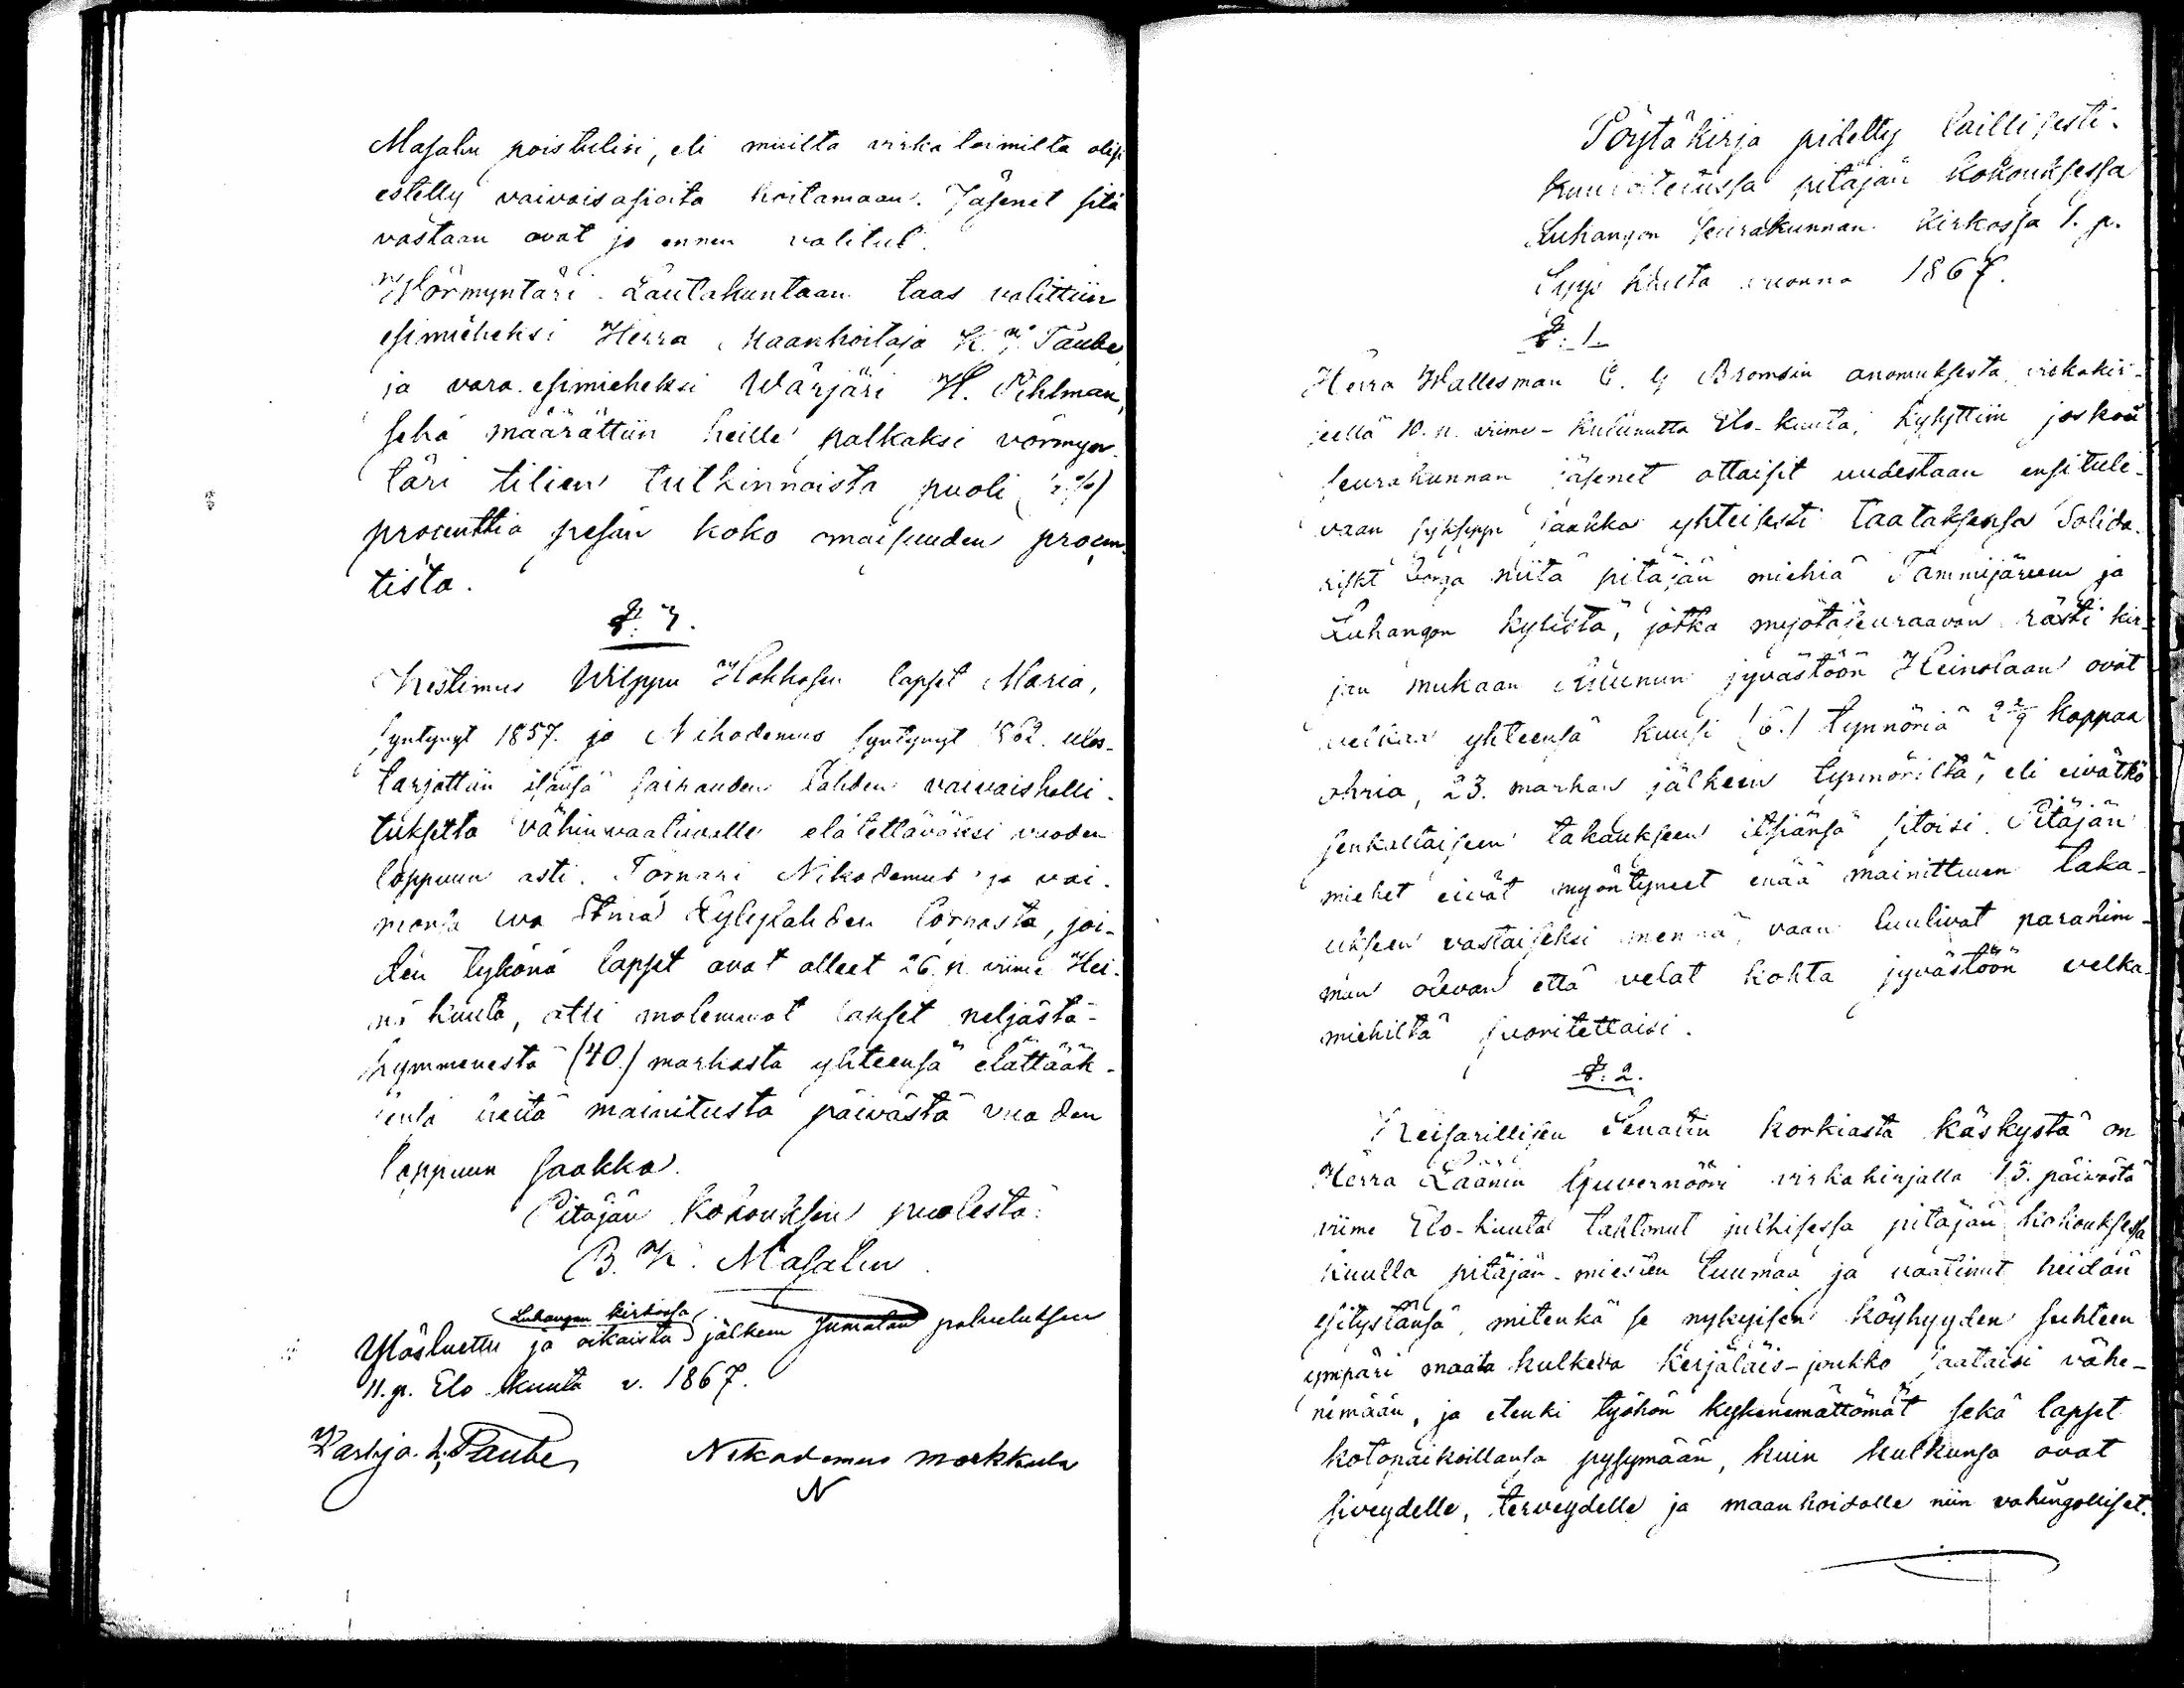 Masalin poistulisi, eli muilta virka toimilta olisi
estelty vaivaisasioita hoitamaan. Jäsenet sitä
vastaan ovat jo ennen valitut.
Wörmyntäri Lautakuntaan taas valittiin
esimieheksi Herra Maanhoitaja K. J. Taube
ja vara esimieheksi Wärjäri H. Pihlman,
sekä määrättiin heille palkaksi vörmyn-
täri tilien tutkinnoista puoli (½ %)
prosenttia pesän koko omaisuuden procen-
tista.
§. 7.
Kestimus Wilppu Hokkosen lapset Maria,
syntynyt 1857. ja Nikodemus syntynyt 1862. ulos-
tarjottiin isänsä sairauden tähden vaivaisholli-
tuksetta vähinvaativalle elätettäväksi vuoden
loppuun asti. Tornari Nikodemus ja vai-
monsa Eva Stina Kylylahden tornasta, joi-
den tykönä lapset ovat olleet 26. p. viime Hei-
nä kuuta, otti molemmat lapset neljästä-
kymmenestä (40.) markasta yhteensä elättääk-
sensä heitä mainitusta päivästä vuoden
loppuun saakka.
Pitäjän kokouksen puolesta:
B. K. Masalin
Luhangon kirkossa
Ylösluettu ja oikaistu jälkeen Jumalan palveluksen
11. p. Elo kuuta v. 1867.
Taube Nikodemus Markkula
N
Pöytäkirja pidetty laillisesti
kuuloitetussa pitäjän kokouksessa
Luhangon seurakunnan kirkossa 1. p.
Syys kuuta vuonna 1867.
§. 1.
Herra Wallesman C. G Bromsin anomuksesta virkakir-
jeellä 10. p. viime-kulunutta Elo-kuuta, kysyttiin jos koko
seurakunnan jäsenet ottaisit uudestaan ensitule-
vaan syksyyn saakka yhteisesti taataksensa Solida-
riskt niitä pitäjän miehiä Tammijärven ja
Luhangon kylistä, jotka myötäseuraavan rästi kir-
jan mukaan Kruunun jyvästöön Heinolaan ovat
velkaa yhteensä kuusi (6.) tynnöriä 2 2/9 kappaa
ohria, 23. markan jälkeen tynnöriltä, eli eivätkö
senkaltaiseen takaukseen itsiänsä sitoisi. Pitäjän
miehet eivät myöntyneet enää mainittuun taka-
ukseen vastaiseksi mennä, vaan luulivat parahim-
man olevan että velat kohta jyvästöön velka-
miehiltä suoritettaisi.
§. 2.
Keisarillisen Senatin korkiasta käskystä on
Herra Läänin Guvernööri virkakirjalla 15. päivästä
viime Elo-kuuta tahtonut julkisessa pitäjän kokouksessa
kuulla pitäjän-miesten tuumaa ja vaatinut heidän
esitystänsä, mitenkä se nykyisen köyhyyden suhteen
ympäri maata kulkeva kerjäläis-joukko saataisi vähe-
nemään, ja etenki työhön kykenemättömät sekä lapset
kotopaikoillansa pysymään, kuin kulkunsa ovat
siveydelle, terveydelle ja maanhoidolle niin vahingolliset.